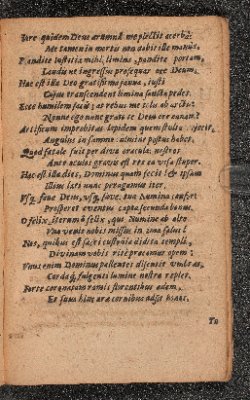 Iure quidem Deus ærumnâ me plectit acerbâ:
Me tamen in mortis non dabit ille manus.
Pandite Iustitiæ mihi, limina, pandite portam,
Laudis ut ingressus prosequar ore Deum.
Hac est illa Deo gratissima janua, justi
Cujus transcendent limina sancta pedes.
Ecce humilem facis: at rebus me tolis ab arctis:
Nonne ego nunc grato te Deus ore canam?
Artificum improbitas lapidem quem stulta rejecit,
Angulus in summo culmine postus habet.
Quod fatale fuit per divos oracula nostros.
Ante oculos gravis est res ea visa stuper.
Hæc est illa dies, Dominus quam fecit: & ipsam
Illius læti nunc peragamus iter.
Usq, fave Deus, usq, fave, tua Numina confer:
Prosperet eventus cæpta secunda bonus.
O felix, iterumq felix, qui Numine ab alto
Unà venis nobis missus in ima salus!
Nos, quibus est sacri custodia credita templi,
Divinam vobis ritè precamur opem:
Unus enim Dominus pallentes discutit umbras,
Cordaq, fulgenti lumine nostra replet.
Forte coronatum ramis florentibus adem,
Et fana hinc aræ cornibus adsit honos.
Tu